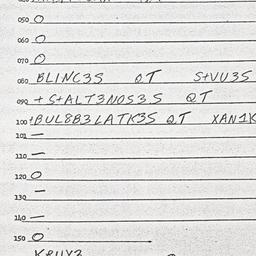 050 O
060 O
070 O
080 BLINC3S QT S+VU3S
090 + S+ALT3NOS3S QT
100 +BUL8B3LATK3S QT XAN1K
101 —
110 —
120 O
130 —
140 —
150 O